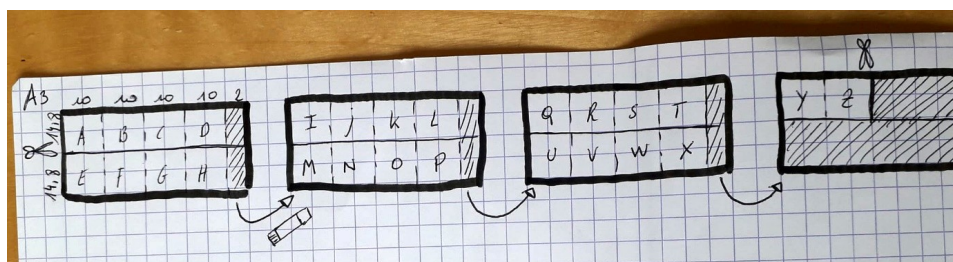 A3 10 10 10 10 2
14,8 A B C D
14,8 E F G H
I j K L
M N O P
Q R S T
U V W X
Y Z